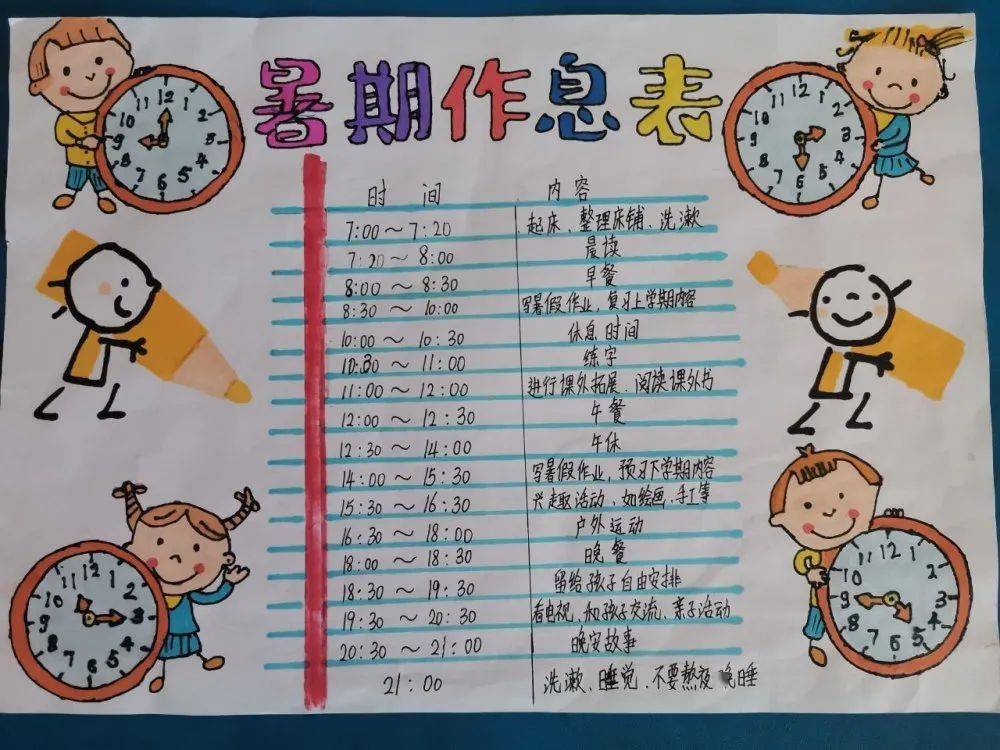 暑期作息表
时 间 内 容
7:00～7:20 起床、整理床铺、洗漱
7:20～8:00 晨读
8:00～8:30 早餐
8:30～10:00 写暑假作业,复习上学期内容
10:00～10:30 休息时间
10:30～11:00 练字
11:00～12:00 进行课外拓展、阅读课外书
12:00～12:30 午餐
12:30～14:00 午休
14:00～15:30 写暑假作业,预习下学期内容
15:30～16:30 兴趣活动、如绘画、手工等
16:30～18:00 户外运动
18:00～18:30 晚餐
18:30～19:30 留给孩子自由安排
19:30～20:30 看电视、和孩子交流、亲子活动
20:30～21:00 晚安故事
21:00 洗漱、睡觉、不要熬夜晚睡
12 1 2 3 4 5 6 7 8 9 10 11
12 1 2 3 4 5 6 7 8 9 10 11
12 1 2 3 4 5 6 7 8 9 10 11
12 1 2 3 4 5 6 7 8 9 10 11